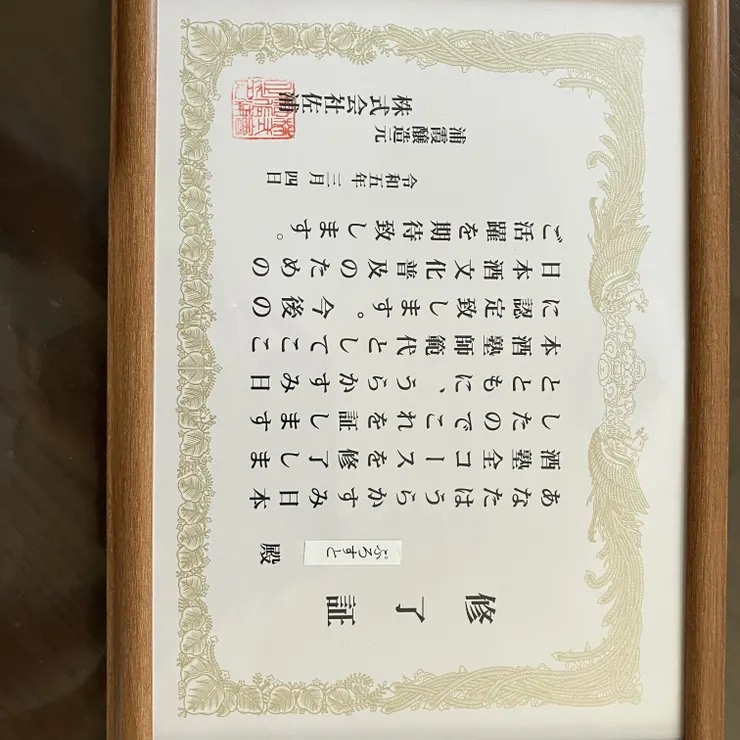 修了証
ぷろすと 殿
あなたはうらかすみ日本
酒塾全コースを修了しま
したのでこれを証します
とともに、うらかすみ日
本酒塾師範代としてここ
に認定致します。今後の
日本酒文化普及のための
ご活躍を期待致します。
令和五年三月四日
浦霞醸造元
株式会社佐浦